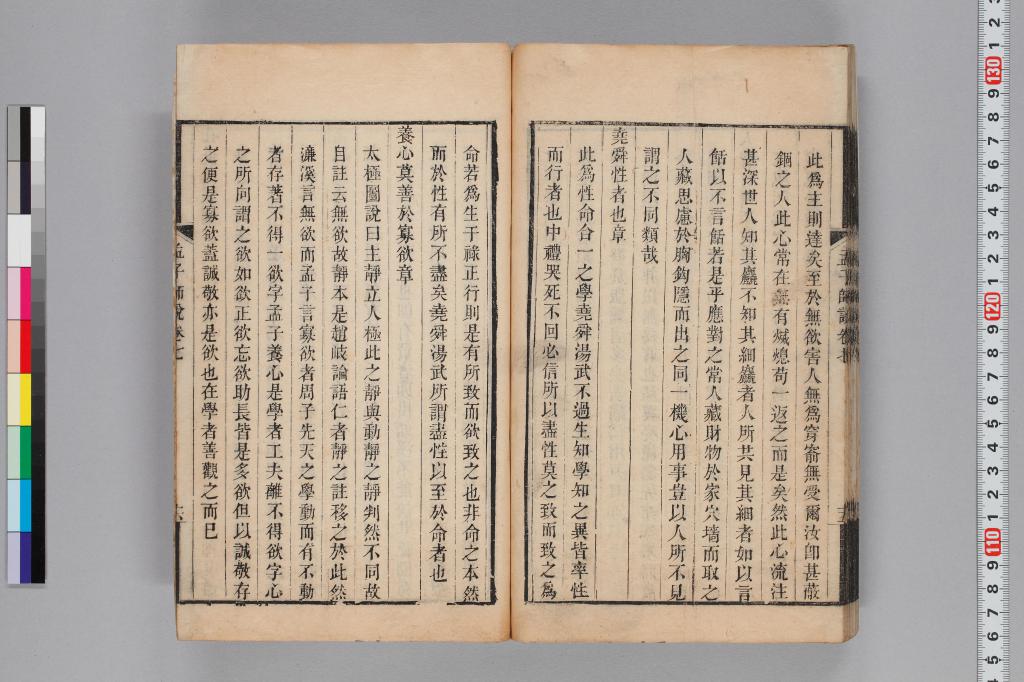 此爲主則達矣至於無欲害人無爲穿窬無受爾汝卽甚蔽
錮之人此心常在無有熄苟一返之而是矣然此心流注
甚深世人知其麤不知其細麤者人所共見其細者如以言
餂以不言餂若是乎應對之常人藏財物於家穴墻而取之
人藏思慮於胸鈎隱而出之同一機心用事豈以人所不見
謂之不同類哉
堯舜性者也章
此爲性命合一之學堯舜湯武不過生知學知之異皆率性
而行者也中禮哭死不回必信所以盡性莫之致而致之爲
命若爲生干祿正行則是有所致而欲致之也非命之本然
而於性有所不盡矣堯舜湯武所謂盡性以至於命者也
養心莫善於寡欲章
太極圖說曰主靜立人極此之靜與動靜之靜判然不同故
自註云無欲故靜本是趙岐論語仁者靜之註移之於此然
濂溪言無欲而孟子言寡欲者周子先天之學動而有不動
者存著不得一欲字孟子養心是學者工夫離不得欲字心
之所向謂之欲如欲正欲忘欲助長皆是多欲但以誠敬存
之便是寡欲蓋誠敬亦是欲也在學者善觀之而已
孟子師說卷七